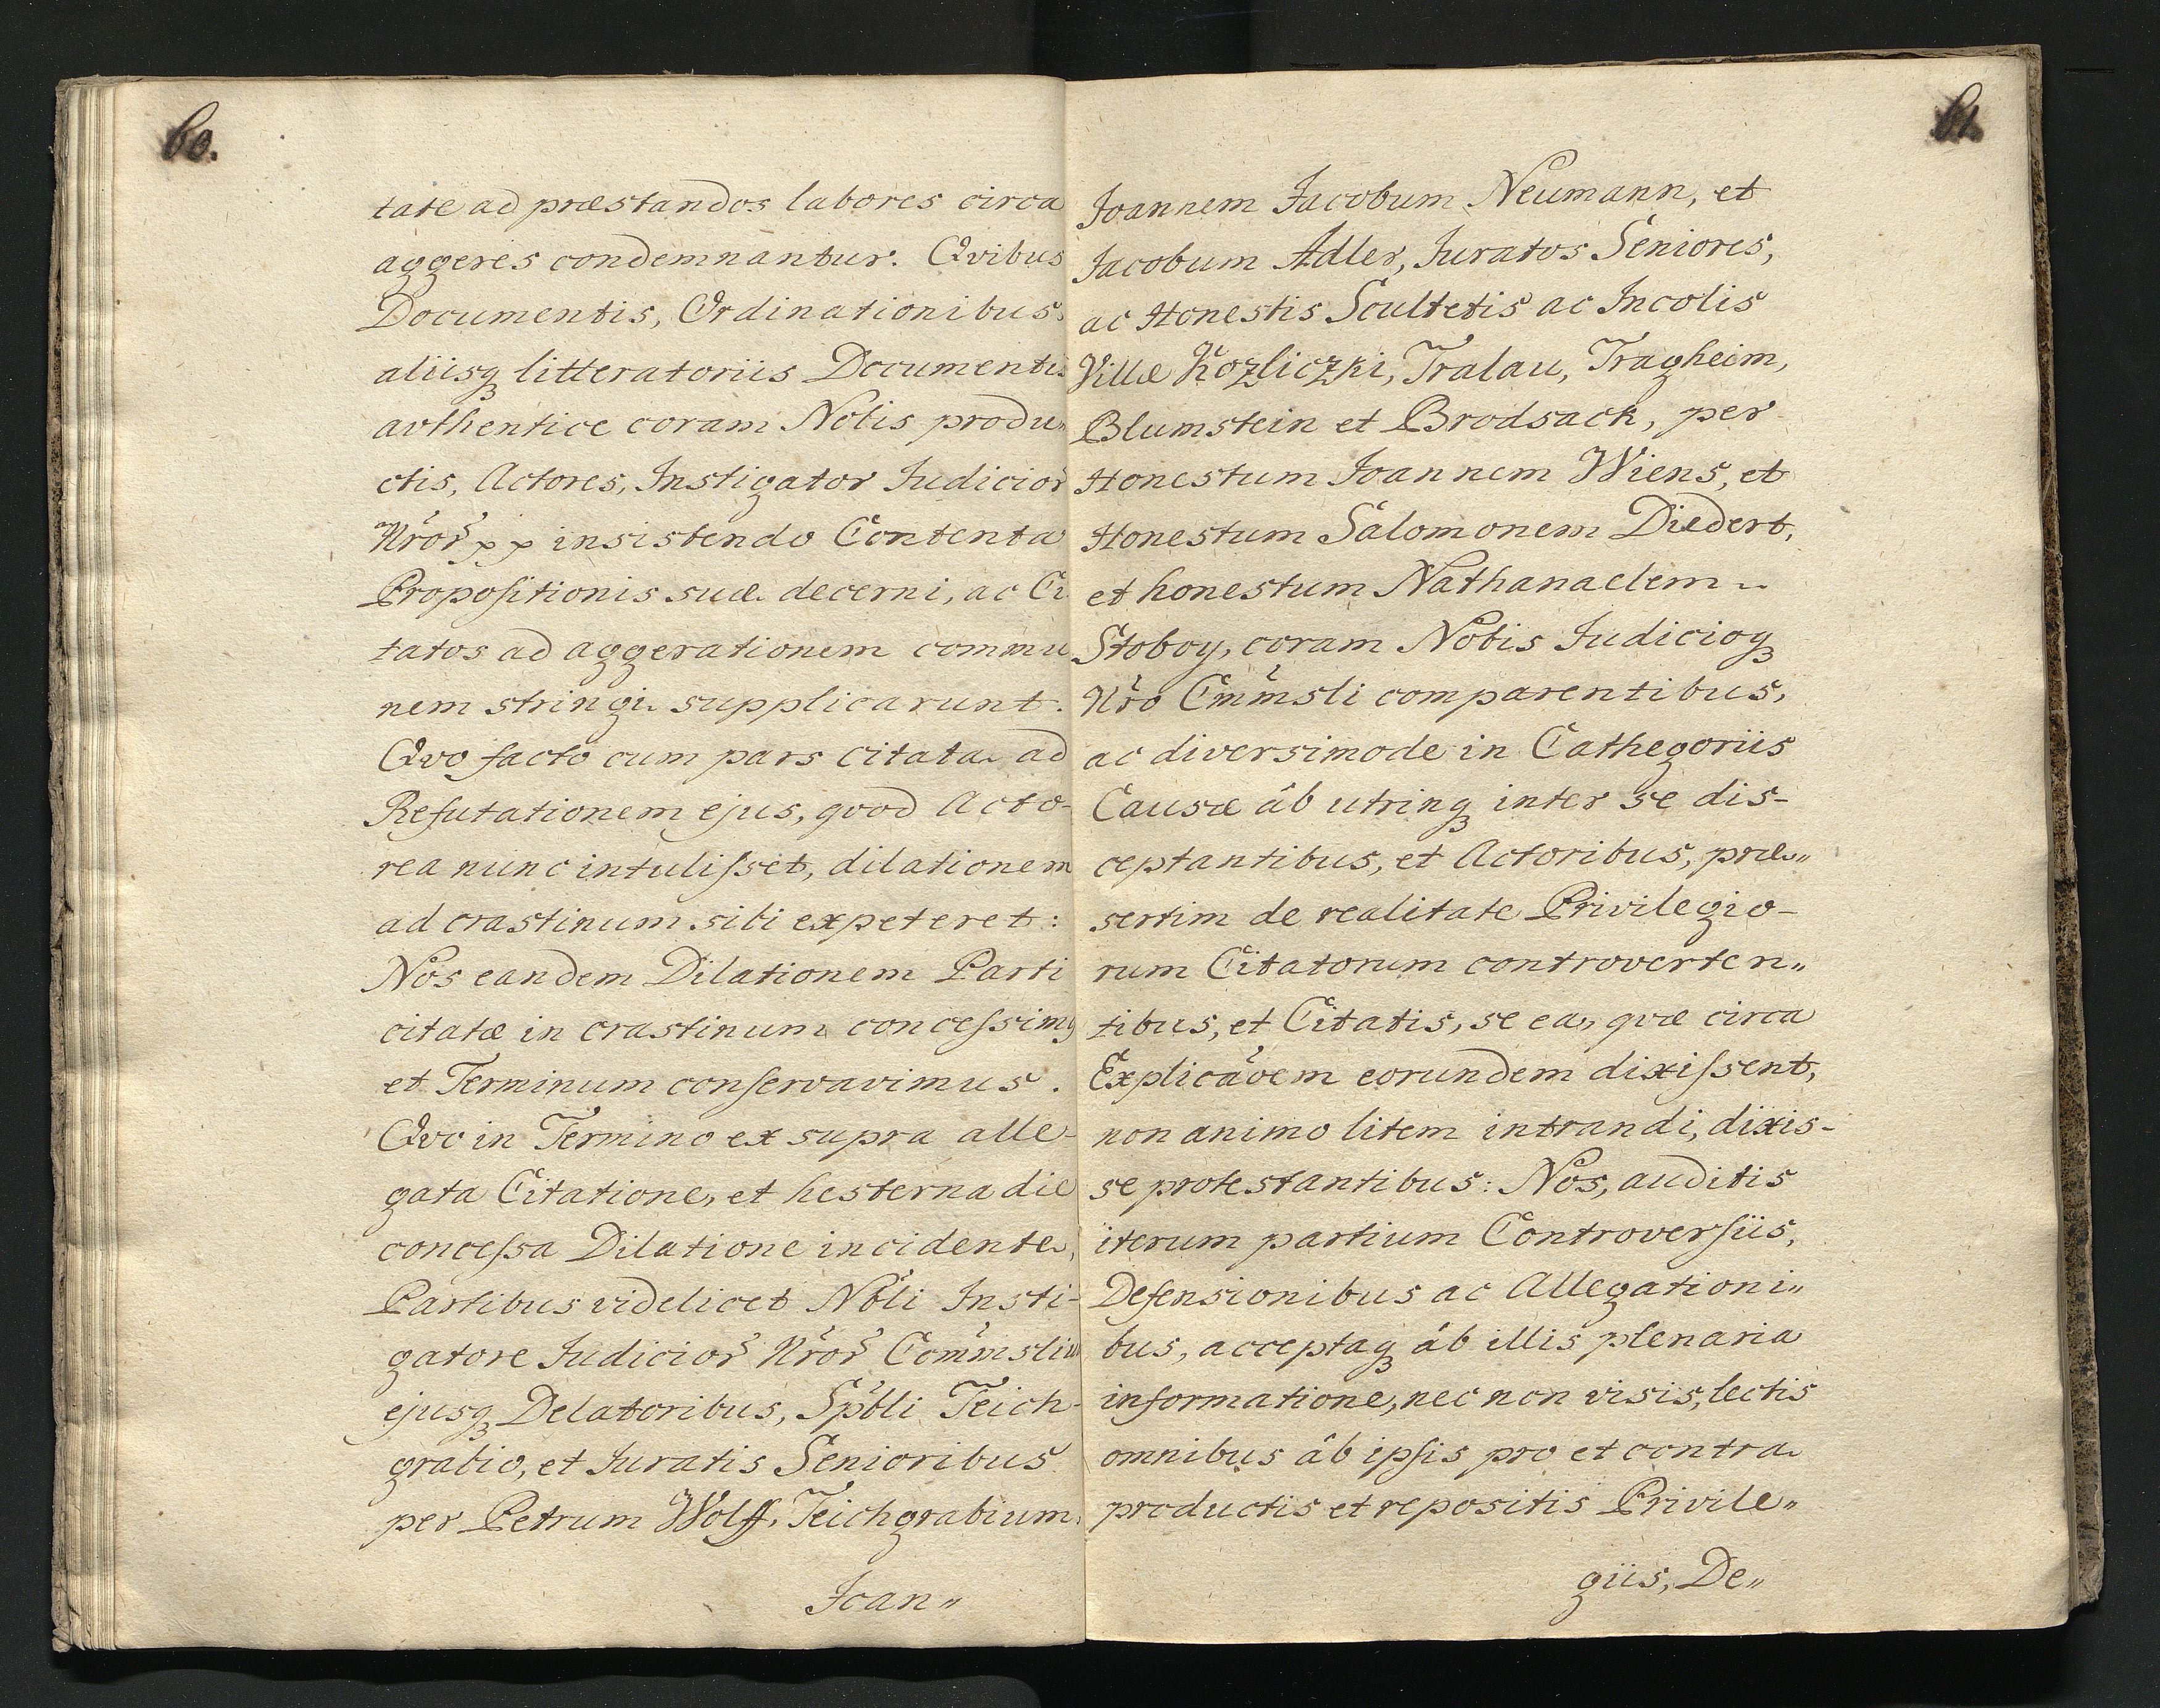 60.
tate ad præstandos labores circa
aggeres condemnantur. Qvibus
Documentis, Ordinationibus,
aliisq₃ litteratoriis Documentis
avthentice coram Nobis produ„
ctis, Actores, Instigator Judicior̃
Nr̃or̃ pp insistendo Contenta
Propoſitionis suæ decerni, ac Ci
tatos ad aggerationem commu
nem stringi supplicarunt.
Qvo facto cum pars citata ad
Refutationem ejus, qvod Acto-
rea nunc intuliſset, dilationem
ad crastinum sibi expeteret:
Nos eandem Dilationem Parti
citatæ in crastinum conceſsimꝰ
et Terminum conſervavimus.
Qvo in Termino ex supra alle-
gata Citatione, et hesterna die
conceſsa Dilatione incidente,
Partibus videlicet Nobli Insti-
gatore Judicior̃ Nr̃or̃ Com̃mslium
ejusq₃ Delatoribus, Spbli Teich-
grabio, et Juratis Senioribus
per Petrum Wolff, Teichgrabium,
Joan„
61.
Joannem Jacobum Neumann, et
Jacobum Adler, Juratos Seniores,
ac Honestis Scultetis ac Incolis
Villæ Kozliczki, Tralau, Tragheim,
Blumstein et Brodsack, per
Honestum Joannem Wiens, et
Honestum Salomonem Diedert,
et honestum Nathanaelem
Stoboy, coram Nobis Judicioq₃
Nr̃o Cm̃m̃sli comparentibus,
ac diversimode in Cathegoriis
Causæ âb utrinq₃ inter se dis-
ceptantibus, et Actoribus, præ„
sertim de realitate Privilegio-
rum Citatorum controverten„
tibus, et Citatis, se ea, qvæ circa
Explicãoem eorundem dixiſsent,
non animo litem intrandi, dixis-
se protestantibus: Nos, auditis
iterum partium Controverſiis,
Defensionibus ac Allegationi„
bus, acceptaq₃ âb illis plenaria
informatione, nec non visis, lectis
omnibus âb ipſis pro et contra
productis et repositis Privile„
giis, De„